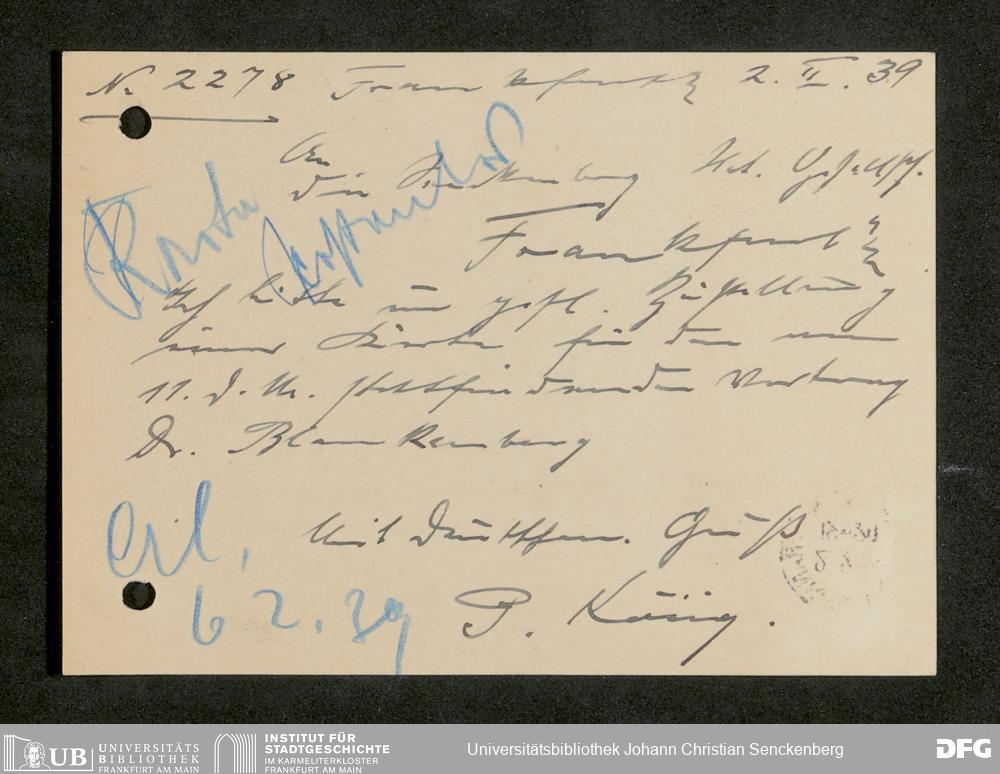 No 2278 Frankfurt 2. II. 39
An
die Senckenberg. Nat. Gesellsch.
Frankfurt
Ich bitte um gefl. Zustellung
einer Karte für den am
11. d. M. stattfindenden Vortrag
Dr. Blankenberg
Mit Deutschem. Gruß
P. König.
Karte
erl.
6 2. 39
UB UNIVERSITÄTS
BIBLIOTHEK
FRANKFURT AM MAIN
INSTITUT FÜR
STADTGESCHICHTE
IM KARMELITERKLOSTER
FRANKFURT AM MAIN
Universitätsbibliothek Johann Christian Senckenberg
DFG